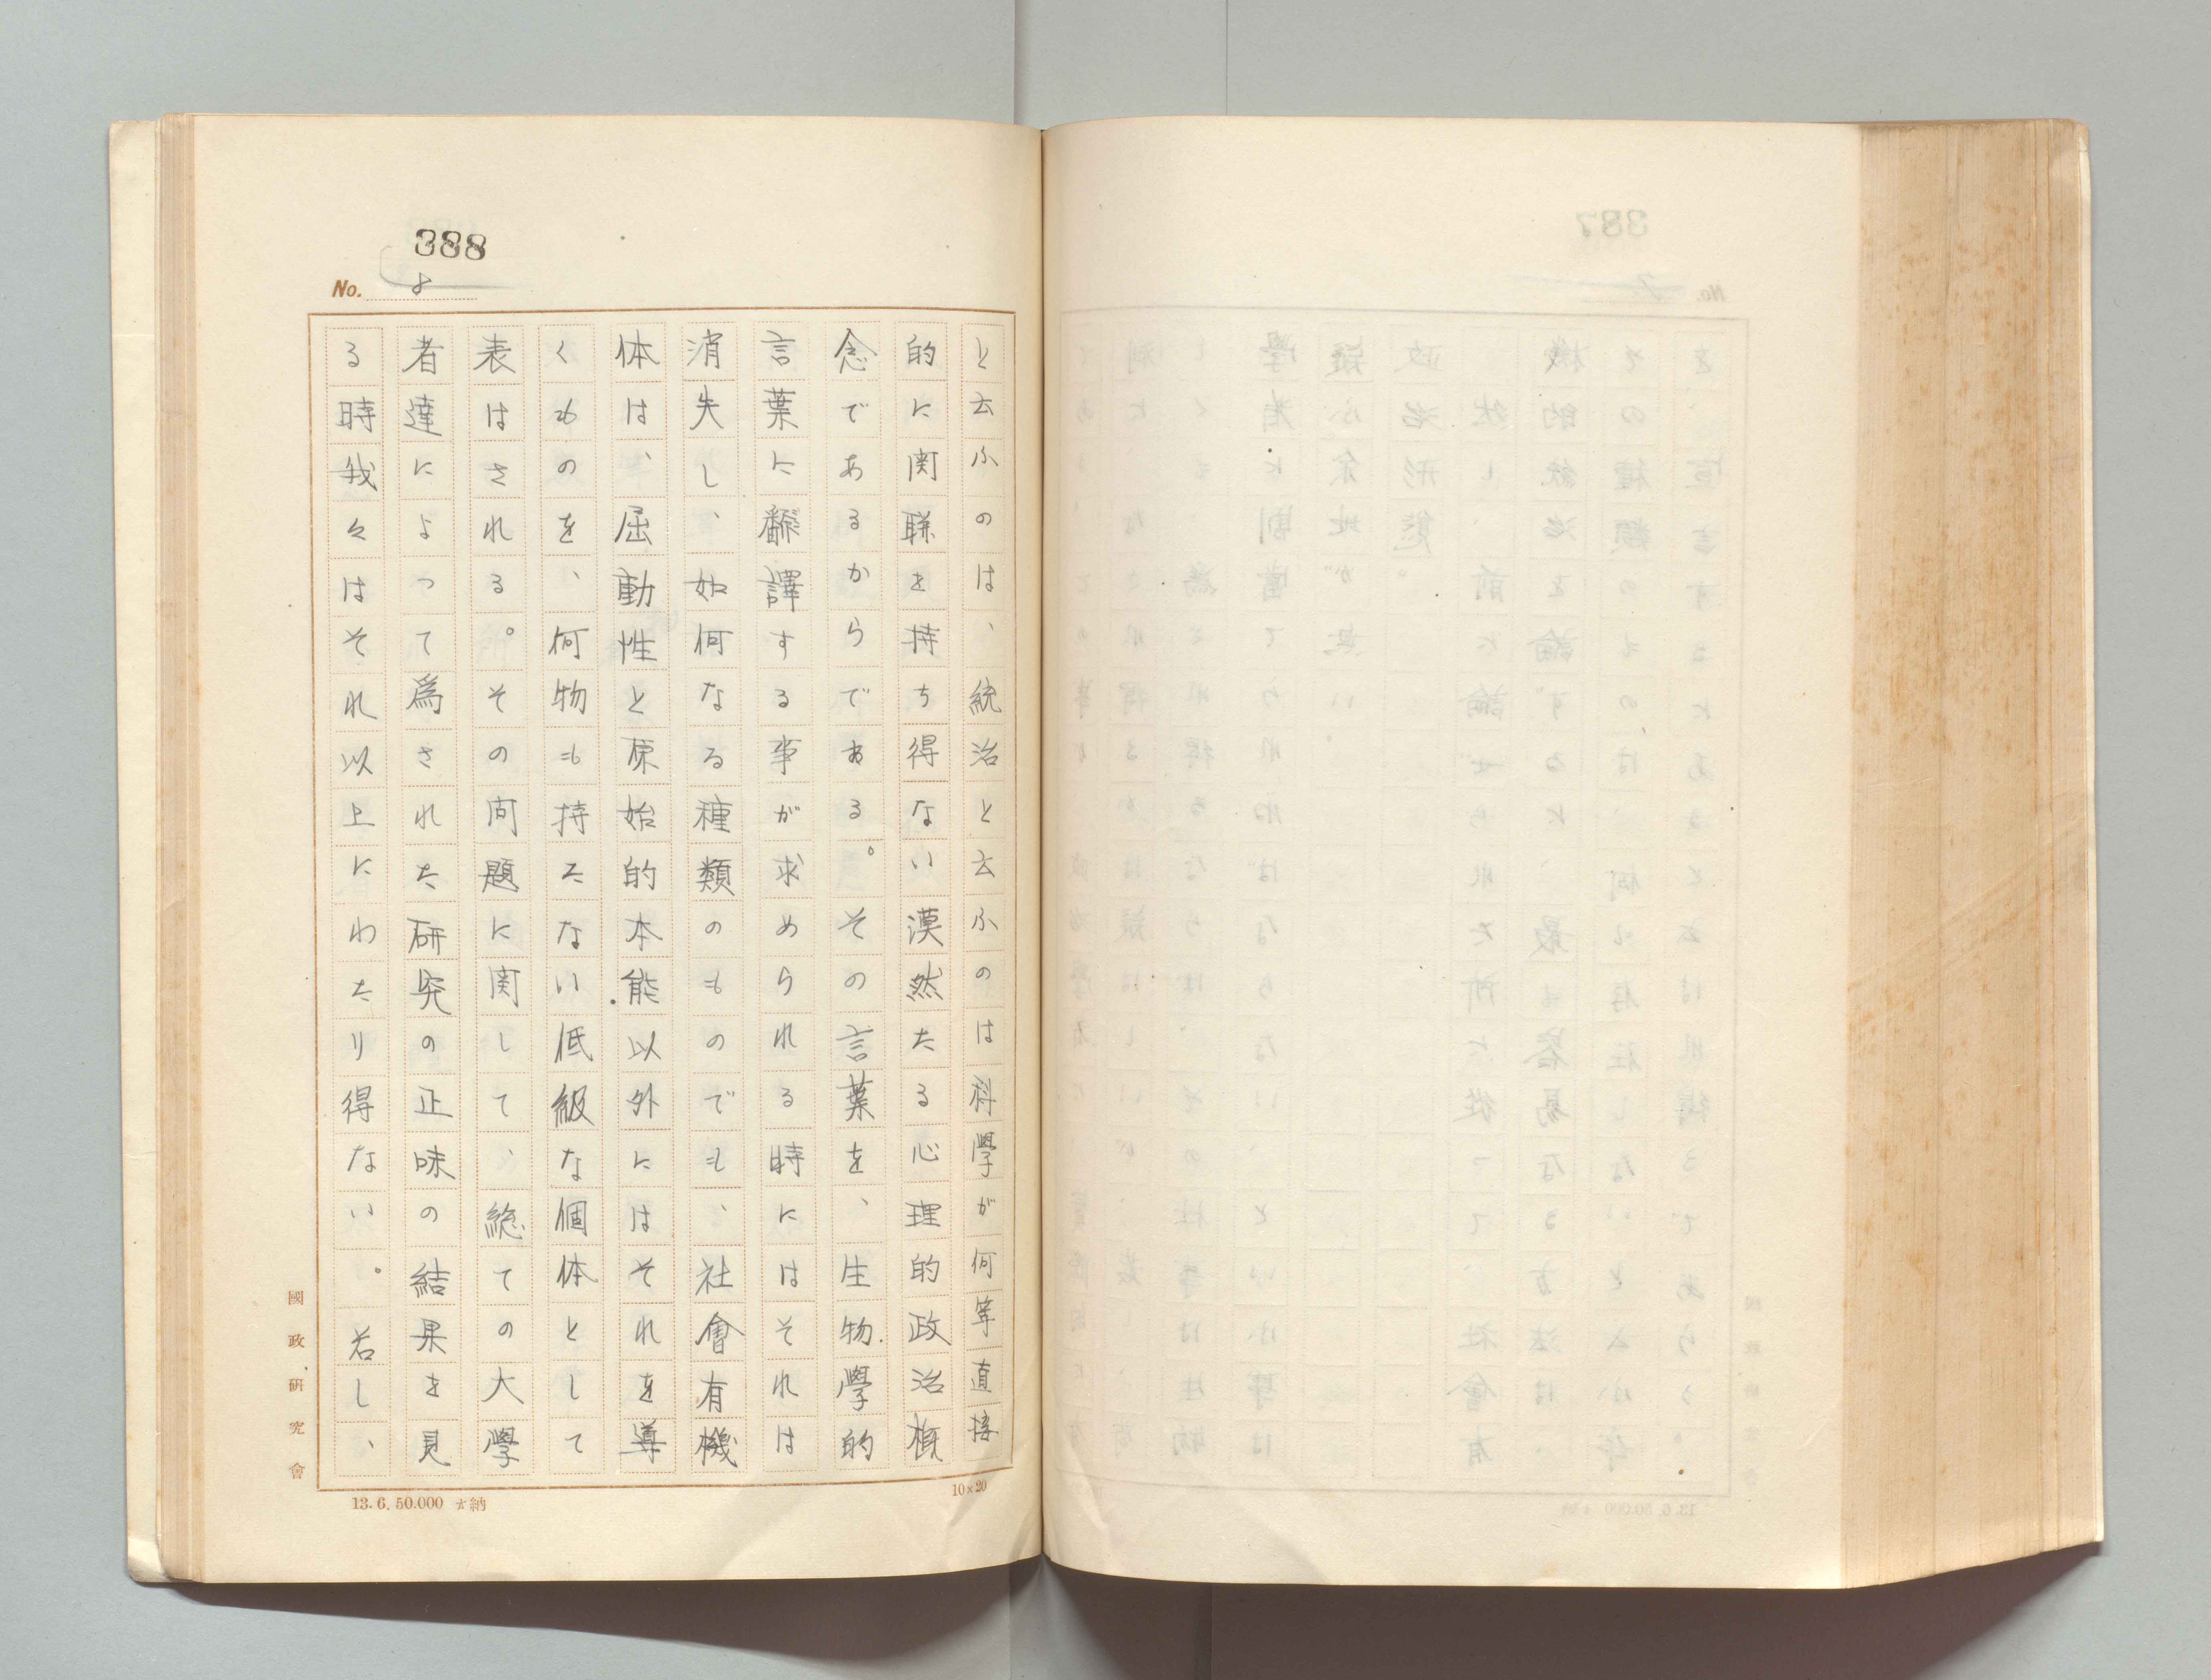 388
No. 8
と云ふのは、統治と云ふのは科學が何等直接
的に関聯を持ち得ない漠然たる心理的政治概
念であるからである。その言葉を、生物學的
言葉に飜譯する事が求められる時にはそれは
消失し、如何なる種類のものでも、社會有機
体は、屈動性と原始的本能以外にはそれを導
くものを、何物も持たない低級な個体として
表はされる。その问題に関して、総ての大學
者達によって爲された研究の正味の結果を見
る時我々はそれ以上にわたり得ない。若し、
國政研究會
13.6.50.000
10×20